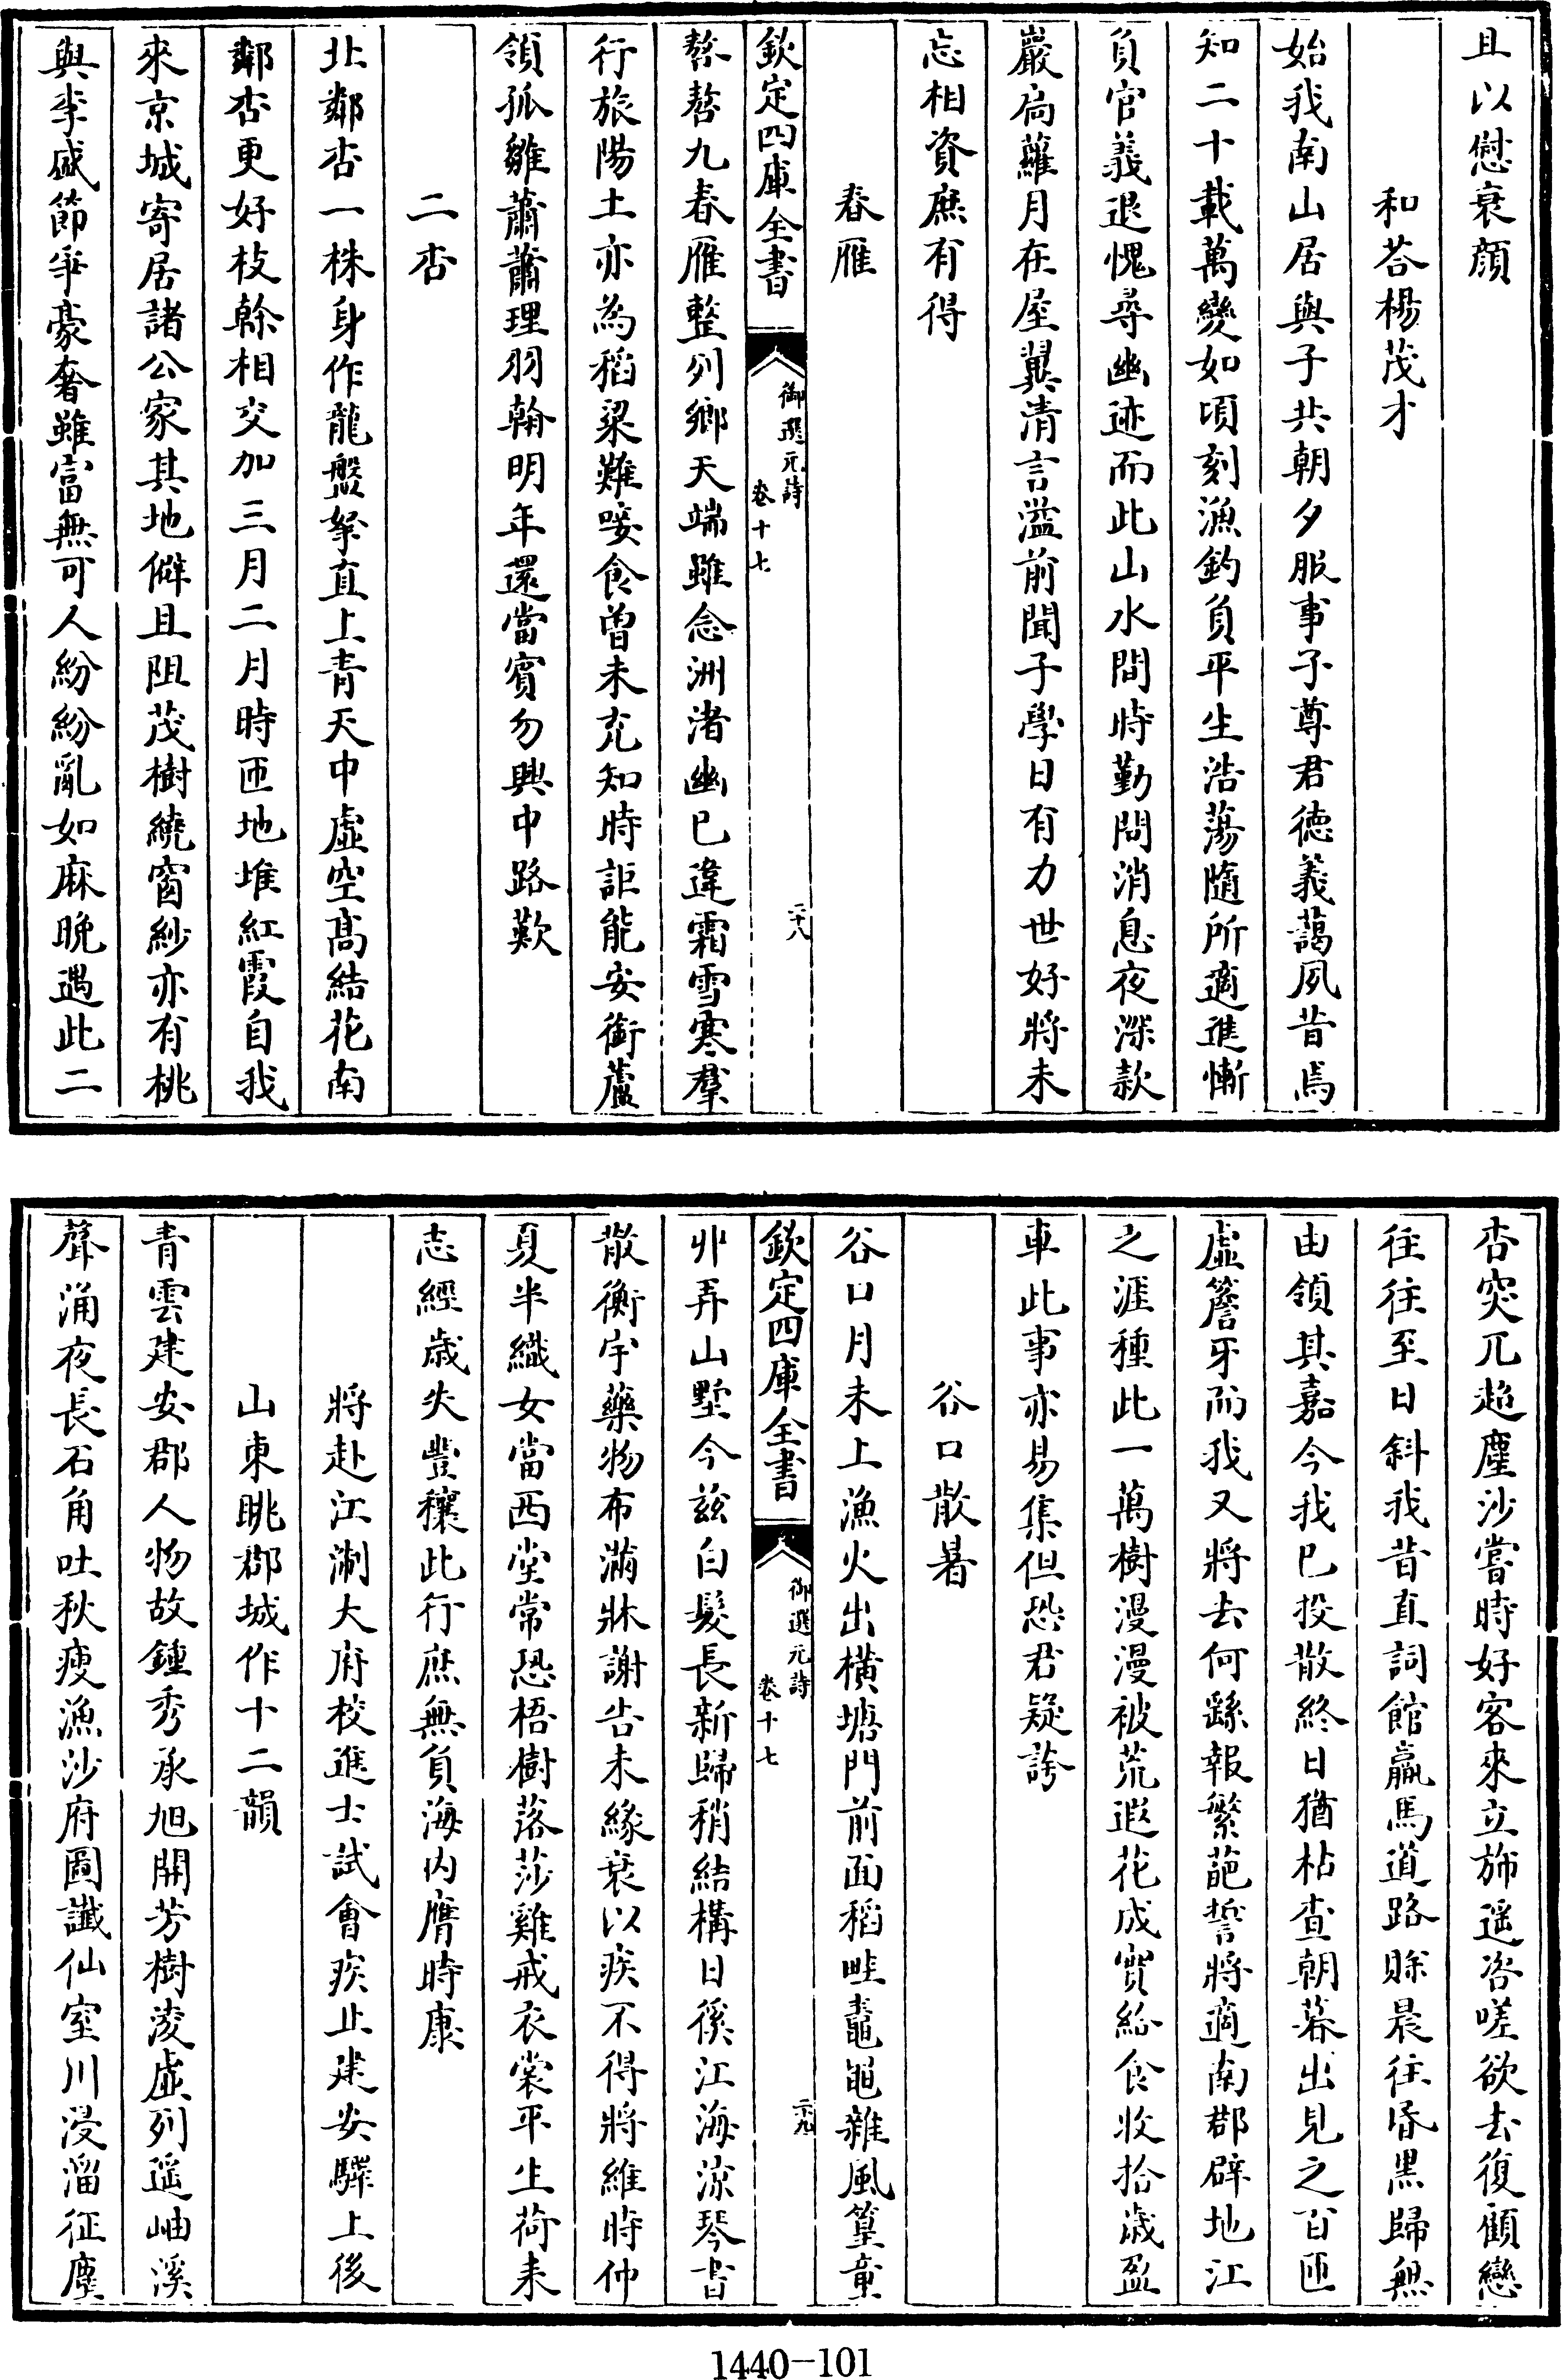 且以慰衰顔
和荅楊茂才
始我南山居與子共朝夕服事子尊君徳義藹夙昔焉
知二十載萬變如頃刻漁釣負平生浩蕩隨所適進慚
負官義退愧尋幽迹而此山水間時勤問消息夜深款
巖扃蘿月在屋翼清言溢前聞子學日有力世好將未
忘相資庶有得
春雁
欽定四庫全書
御選元詩
卷十七
二十八
嗸嗸九春雁整列鄉天端雖念洲渚幽已違霜雪寒羣
行旅陽土亦為稻粱難唼食曽未充知時詎能安銜蘆
領孤雛蕭蕭理羽翰明年還當賓勿興中路歎
二杏
北鄰杏一株身作龍盤拏直上青天中虛空高結花南
鄰杏更好枝榦相交加三月二月時匝地堆紅霞自我
來京城寄居諸公家其地僻且阻茂樹繞窗紗亦有桃
與李盛節爭豪奢雖富無可人紛紛亂如麻晚遇此二
杏突兀超塵沙嘗時好客來立斾遥咨嗟欲去復顧戀
往往至日斜我昔直詞館羸馬道路賒晨往昏黒歸無
由領其嘉今我已投散終日猶枯查朝暮出見之百匝
虛簷牙而我又將去何繇報繁葩誓將適南郡辟地江
之涯種此一萬樹漫漫被荒遐花成實給食收拾歳盈
車此事亦易集但恐君疑誇
谷口散暑
谷口月未上漁火出橫塘門前面稻畦鼃黽雜風篁童
欽定四庫全書
御選元詩
卷十七
二十九
丱弄山墅今兹白髮長新歸稍結構日徯江海涼琴書
散衡宇藥物布滿牀謝告未縁衰以疾不得將維時仲
夏半織女當西堂常恐梧樹落莎雞戒衣裳平生荷耒
志經歳失豐穰此行庶無負海内膺時康
將赴江淛大府校進士試會疾止建安驛上後
山東眺郡城作十二韻
青雲建安郡人物故鍾秀承旭開芳樹淩虛列遥岫溪
聲涌夜長石角吐秋瘦漁沙府圖讖仙室川浸溜征塵
1440—101